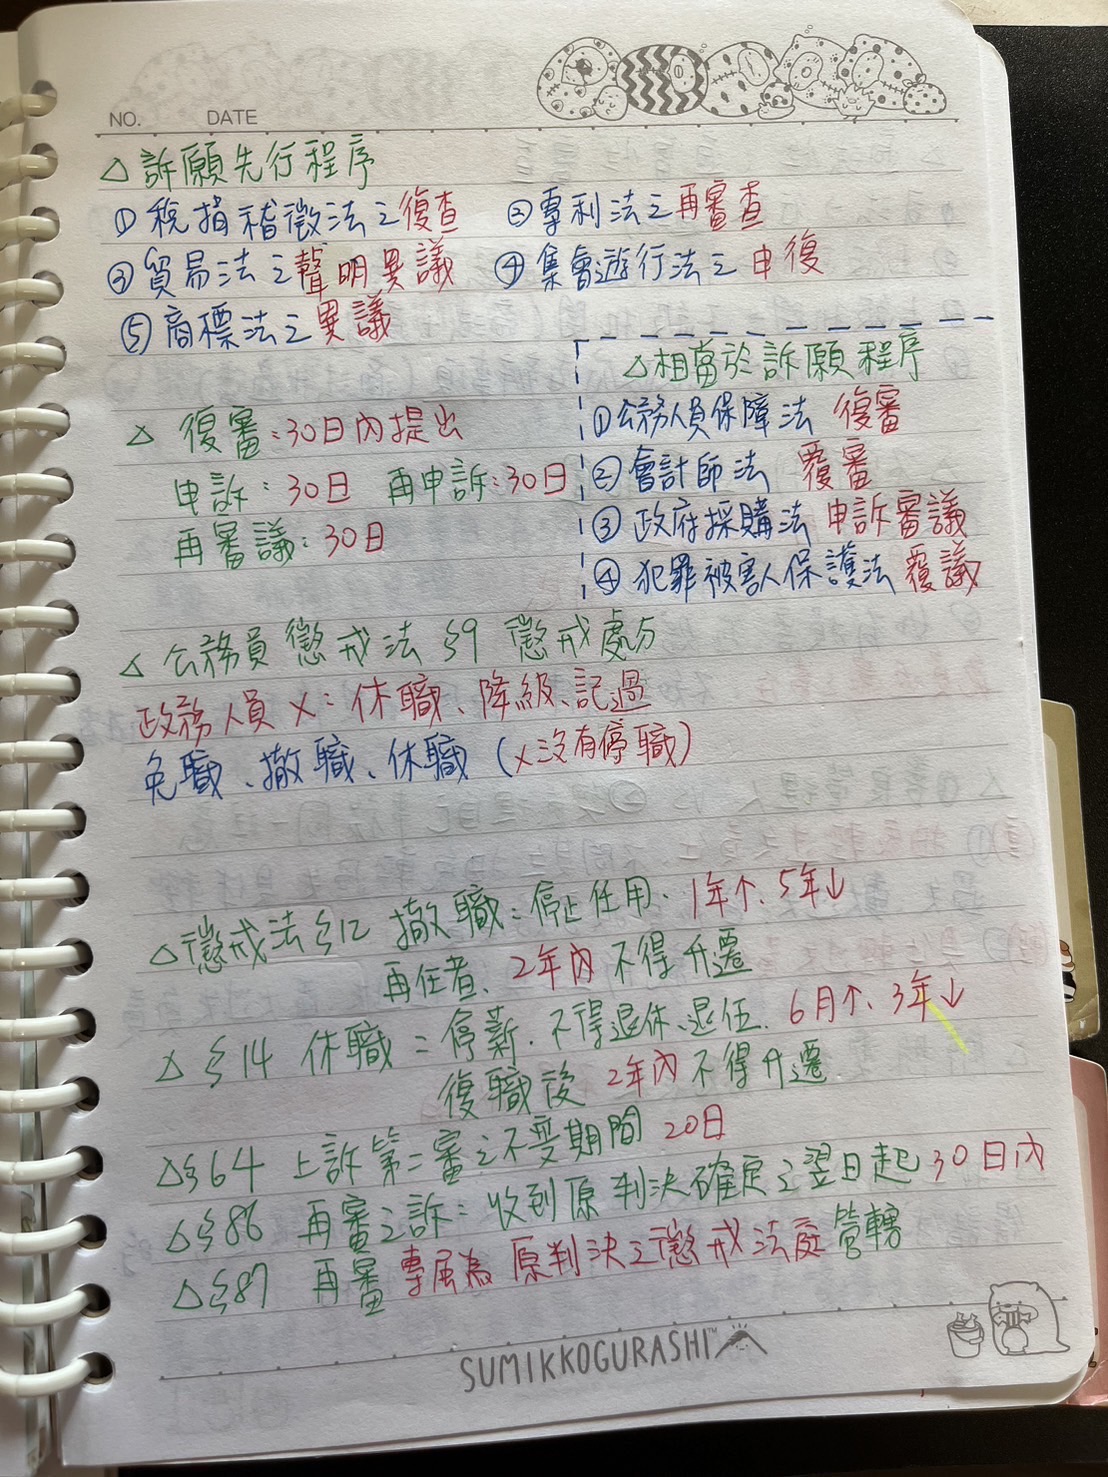 NO. DATE
△訴願先行程序
①稅捐稽徵法之復查 ②專利法之再審查
③貿易法之聲明異議 ④集會遊行法之申復
⑤商標法之異議
△相當於訴願程序
①公務人員保障法 復審
②會計師法 覆審
③政府採購法 申訴審議
④犯罪被害人保護法 覆議
△ 復審:30日內提出
申訴:30日 再申訴:30日
再審議:30日
△公務員懲戒法§9 懲戒處分
政務人員X:休職、降級、記過
免職、撤職、休職(X沒有停職)
△懲戒法§12 撤職:停止任用. 1年↑、5年↓
再任者、2年內不得升遷
△§14 休職:停薪.不得退休、退伍. 6月个、3年↓
復職後 2年內不得升遷.
△§64 上訴第二審之不變期間 20日
△§86 再審之訴:收到原判決確定之翌日起30日內
△§87 再審專屬為原判決之懲戒法庭管轄
SUMIKKOGURASHI™